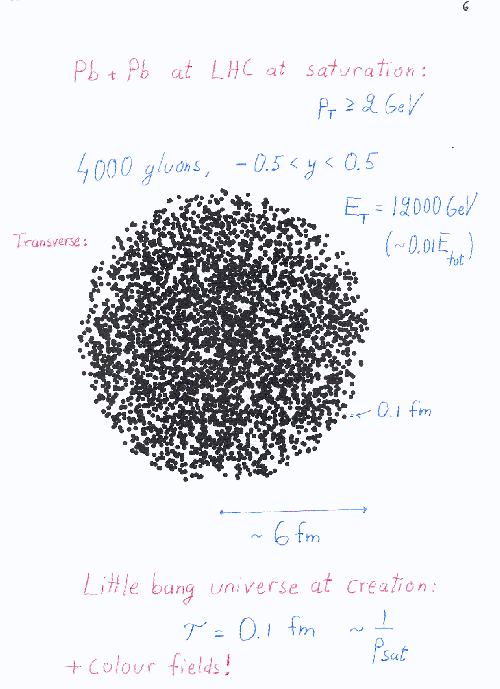 6
Pb + Pb at LHC at saturation:
P_T ≥ 2 GeV
4000 gluons, -0.5 < y < 0.5
E_T = 12000 GeV
(~0.01E_tot)
Transverse:
0.1 fm
~ 6 fm
Little bang universe at creation:
τ = 0.1 fm ~ 1/P_sat
+ colour fields!